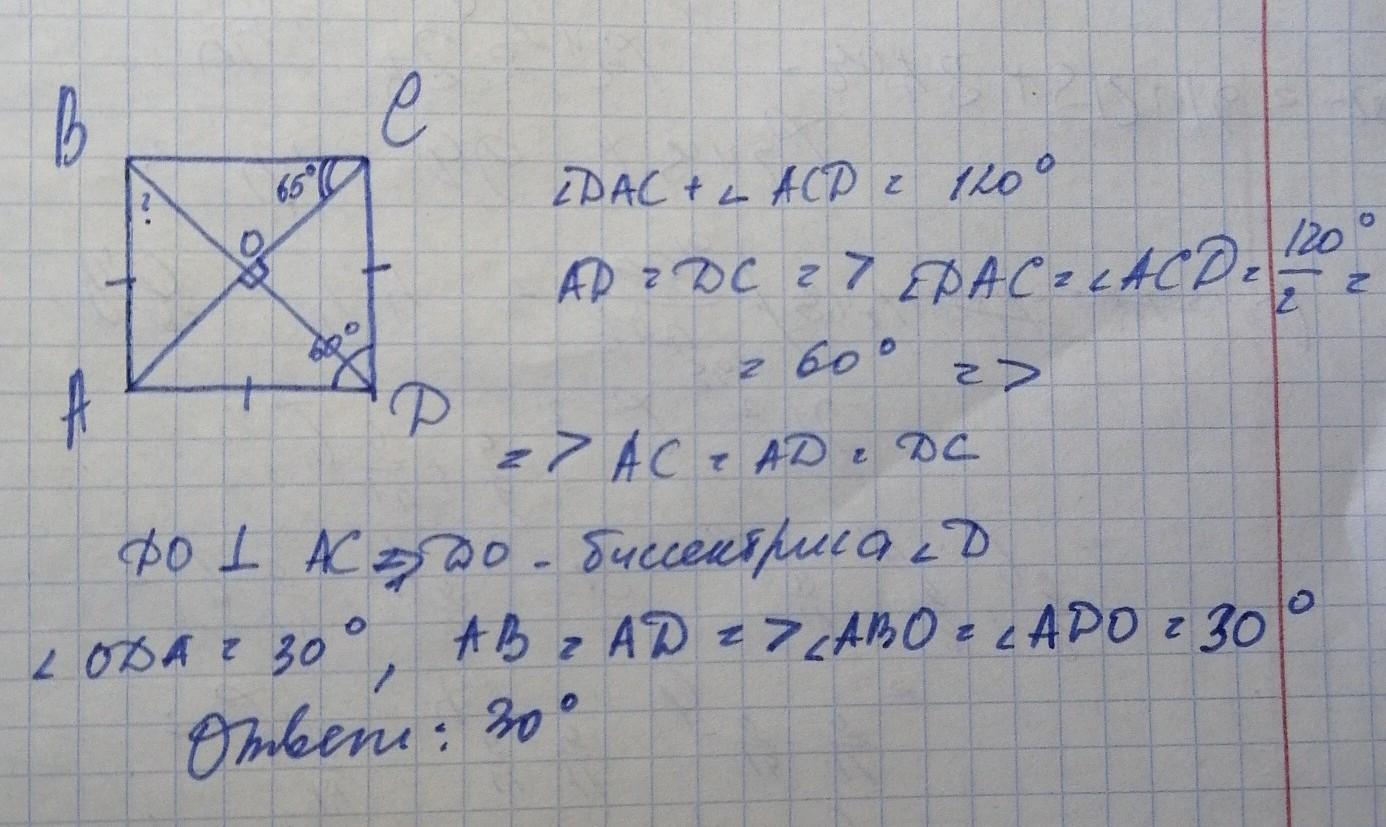 B
C
65°
?
O
60°
A
D
∠DAC + ∠ACD = 120°
AD = DC => ∠DAC = ∠ACD = 120°/2 =
= 60° =>
=> AC = AD = DC
DO ⊥ AC => DO - биссектриса ∠D
∠ODA = 30°, AB = AD => ∠ABO = ∠ADO = 30°
Ответ: 30°